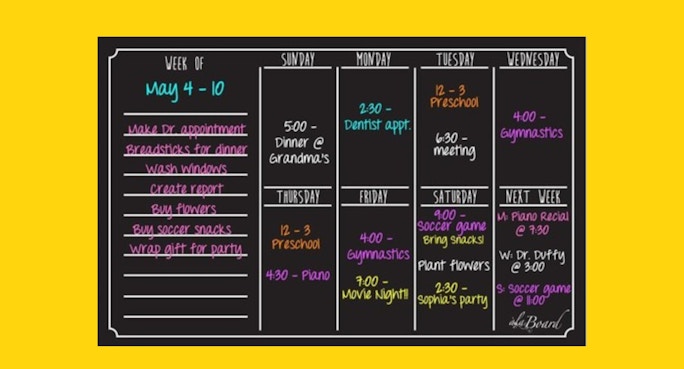 WEEK OF
May 4 - 10
Make Dr. appointment
Breadsticks for dinner
Wash windows
Create report
Buy flowers
Buy soccer snacks
Wrap gift for party
SUNDAY
5:00 -
Dinner @
Grandma's
MONDAY
2:30 -
Dentist appt.
TUESDAY
12 - 3
Preschool
6:30 -
meeting
WEDNESDAY
4:00 -
Gymnastics
THURSDAY
12 - 3
Preschool
4:30 - Piano
FRIDAY
4:00 -
Gymnastics
7:00 -
Movie Night!!
SATURDAY
9:00 -
Soccer game
Bring snacks!
Plant flowers
2:30 -
Sophia's party
NEXT WEEK
M: Piano Recial
@ 7:30
W: Dr. Duffy
@ 3:00
S: Soccer game
@ 11:00
Board